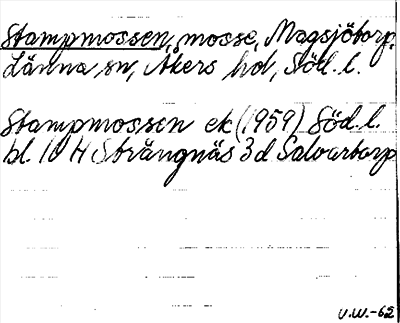 Stampmossen, mosse, Magsjötorp,
Länna sn, Åkers hd, Söd. l.
Stampmossen ek (1959) Söd. l.
bl. 10 H Strängnäs 3d Salvartorp
V.W.-62